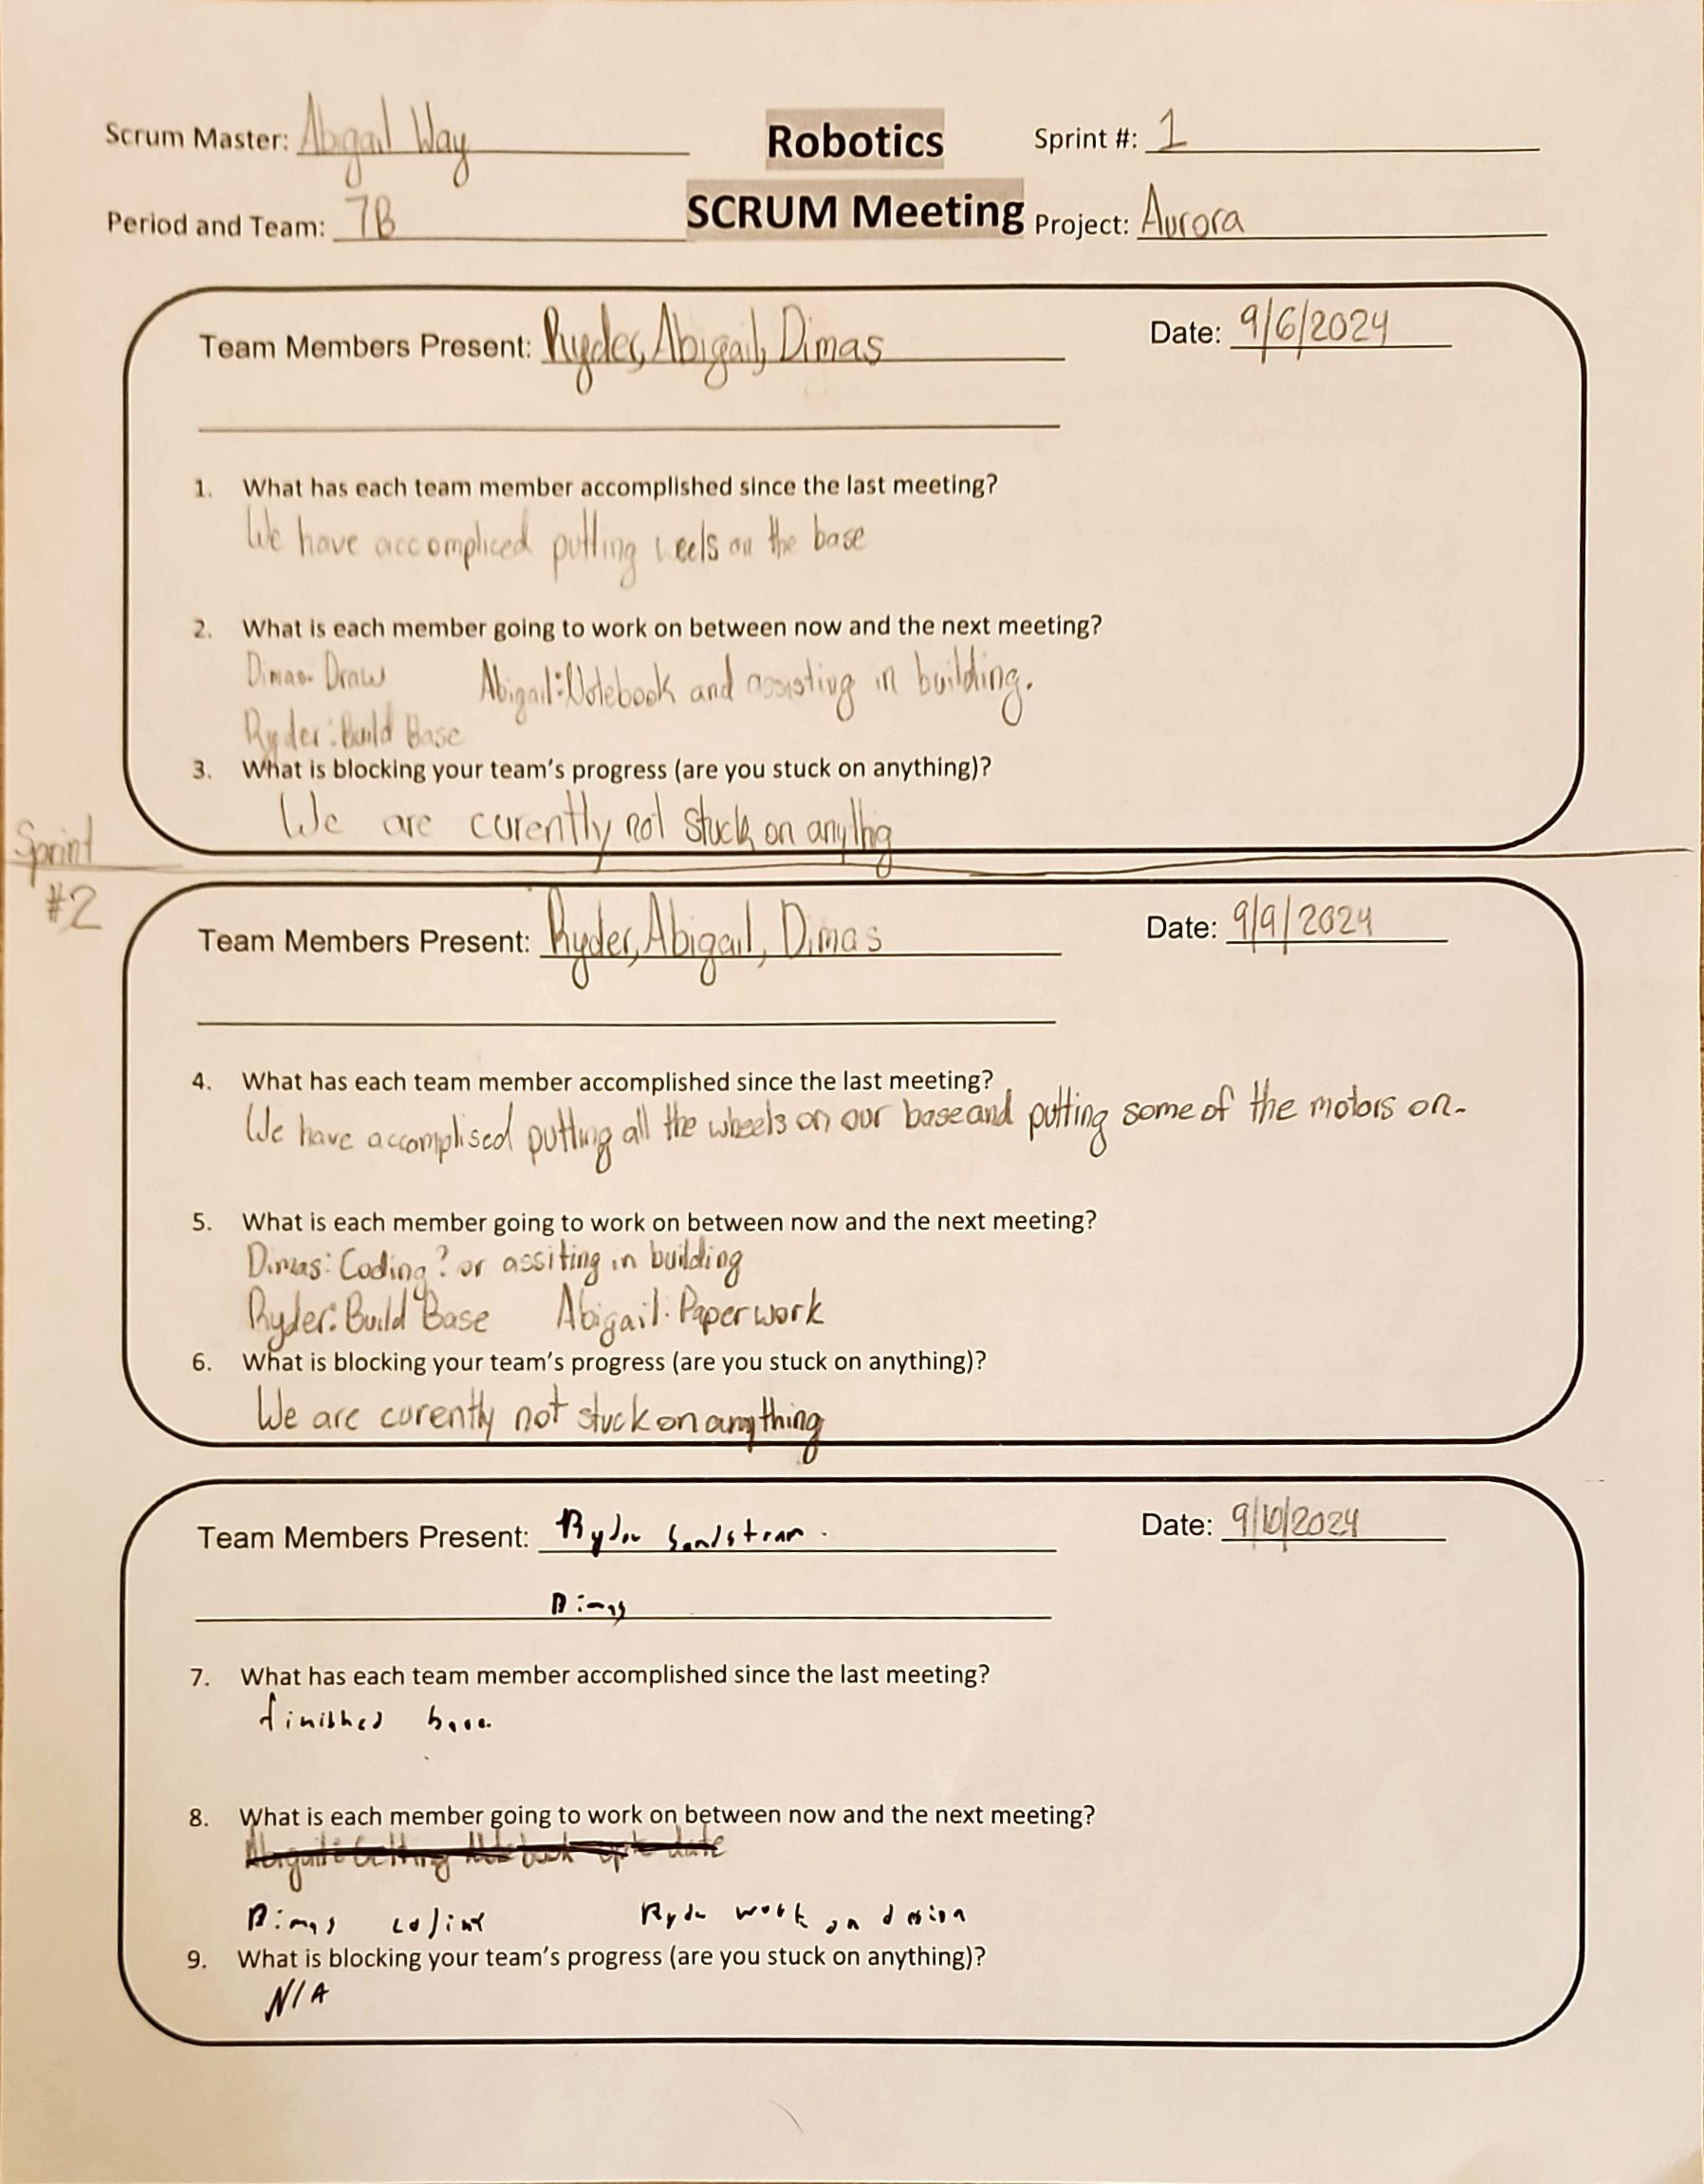 Scrum Master: Abigail Way
Robotics
Sprint #: 1
Period and Team: 7B
SCRUM Meeting
Project: Aurora
Team Members Present: Ryder, Abigail, Dimas
Date: 9/6/2024
1. What has each team member accomplished since the last meeting?
We have accompliced putting weels on the base
2. What is each member going to work on between now and the next meeting?
Dimas: Draw Abigail: Notebook and assisting in building.
Ryder: Build Base
3. What is blocking your team's progress (are you stuck on anything)?
We are curently not stuck on anythg
Sprint
#2
Team Members Present: Ryder, Abigail, Dimas
Date: 9/9/2024
4. What has each team member accomplished since the last meeting?
We have accomplised putting all the wheels on our base and putting some of the motors on.
5. What is each member going to work on between now and the next meeting?
Dimas: Coding? or assiting in building
Ryder: Build Base Abigail: Paper work
6. What is blocking your team's progress (are you stuck on anything)?
We are curently not stuck on anything
Team Members Present: Ryder Sandstrom.
Date: 9/10/2024
Dimas
7. What has each team member accomplished since the last meeting?
finished base.
8. What is each member going to work on between now and the next meeting?
Abigail: Getting Notebook up to date
Dimas coding Ryder work on design
9. What is blocking your team's progress (are you stuck on anything)?
N/A